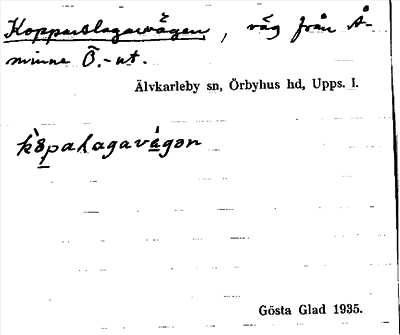 Kopparslagarvägen, väg från Å-
minne Ö.-ut.
Älvkarleby sn, Örbyhus hd, Upps. l.
kòpalagavǻgən
Gösta Glad 1935.